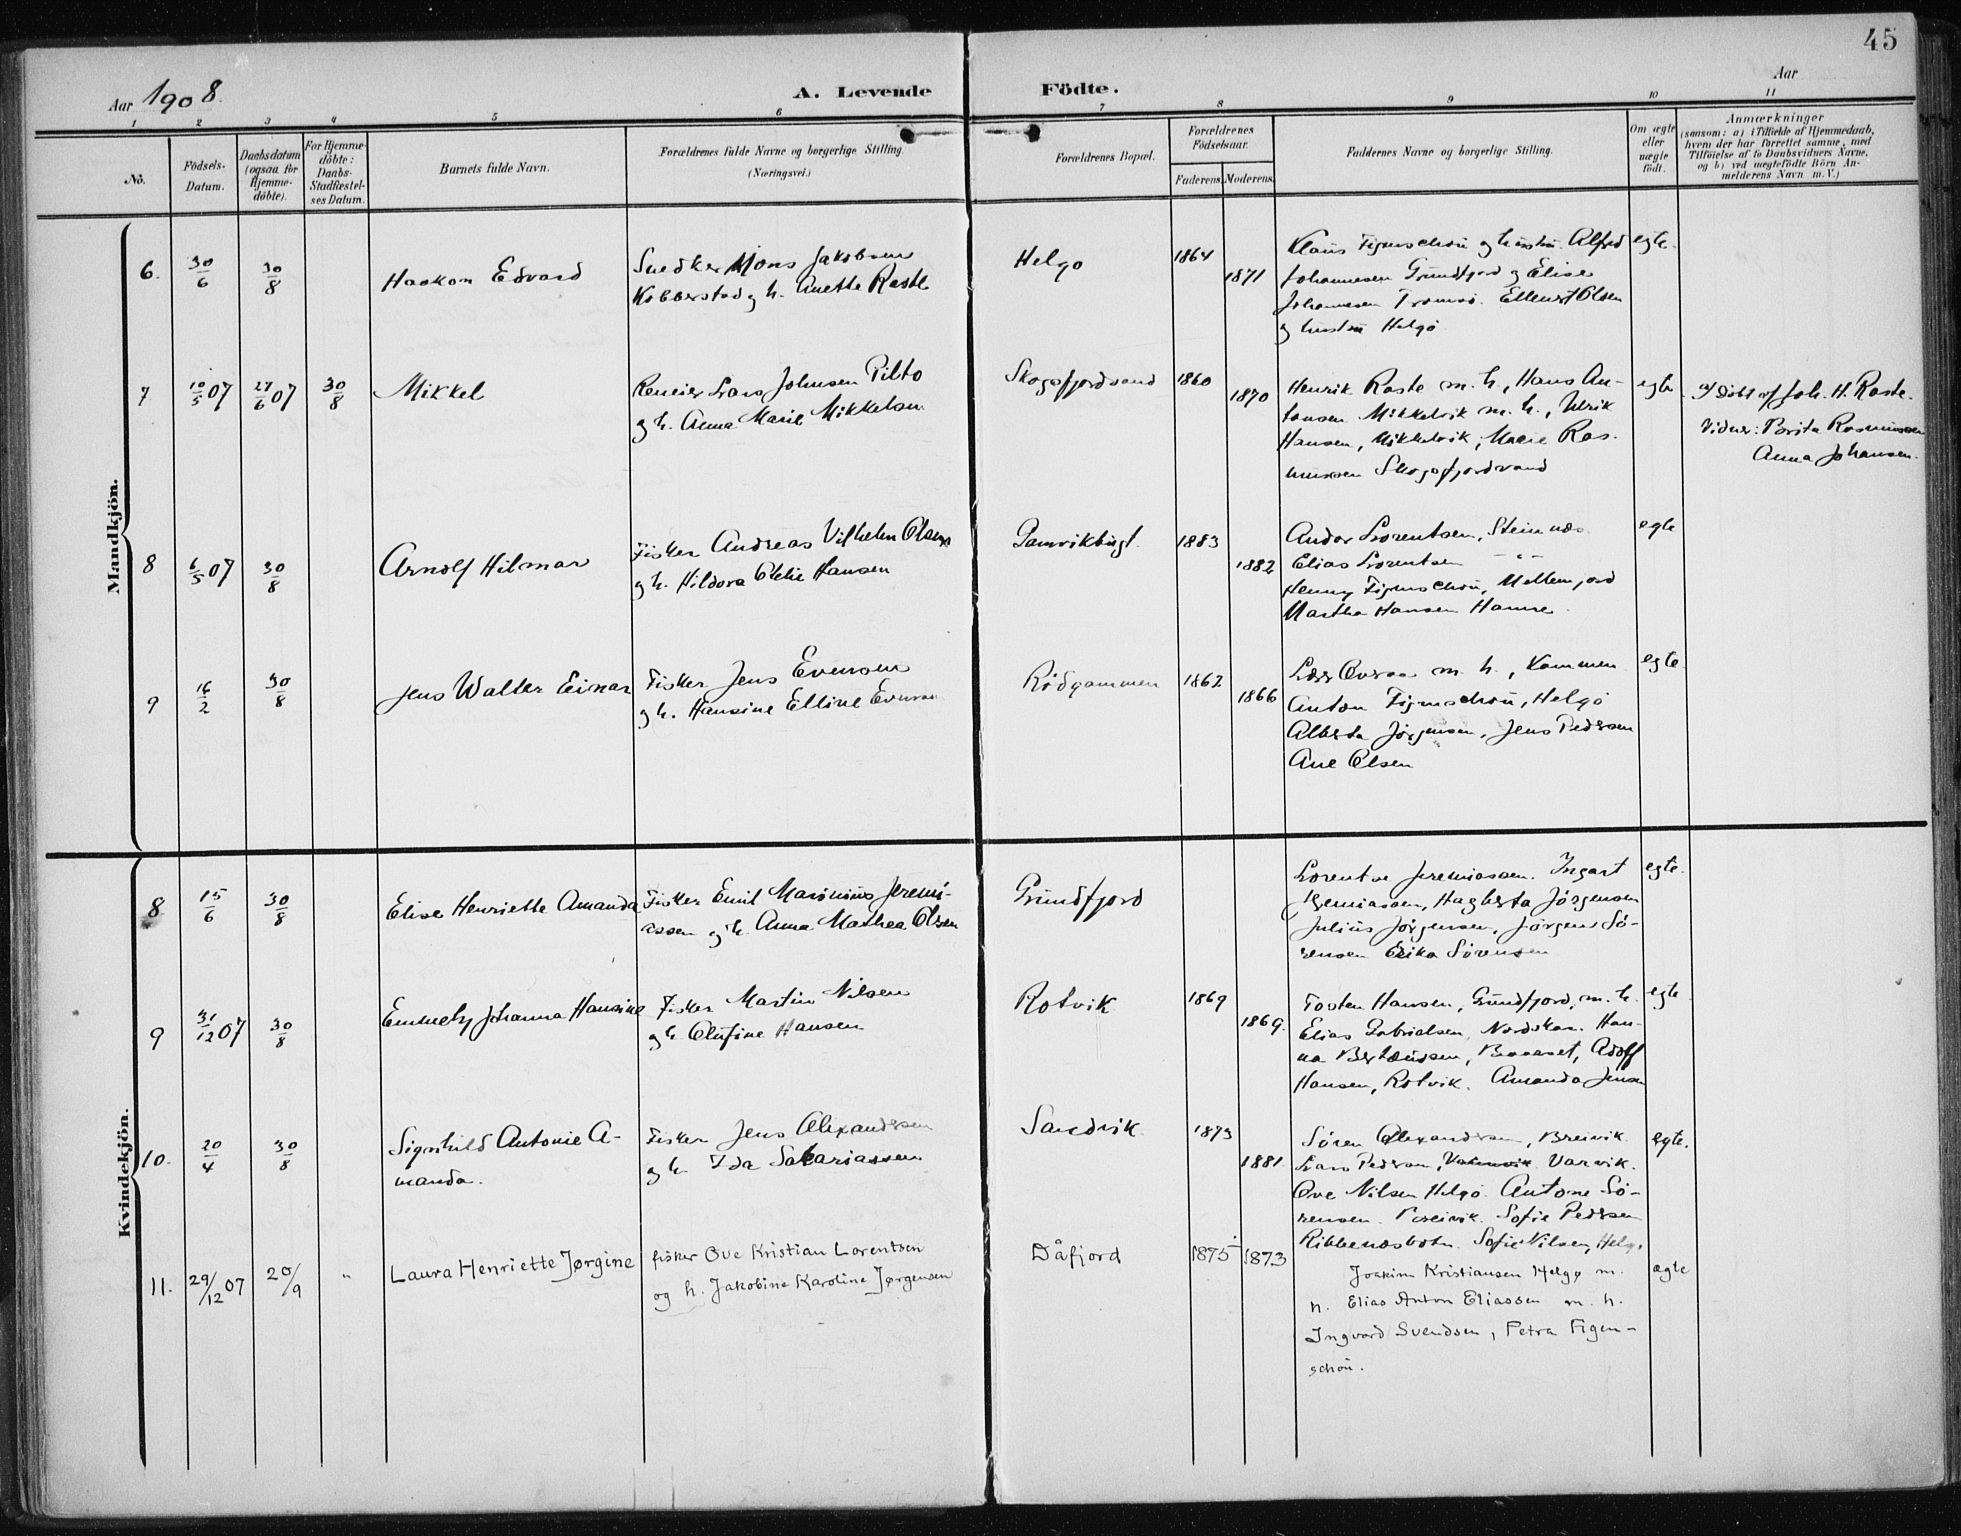 45
Aar 1908.
A. Levende
Födte.
Aar
1 2 3 4 5 6 7 8 9 10 11
No.
Födsels-
Datum.
Daabsdatum
(ogsaa for
Hjemme-
döbte).
For Hjemme-
döbte:
Daabs-
Stadfæstel-
ses Datum.
Barnets fulde Navn.
Forældrenes fulde Navne og borgerlige Stilling.
(Næringsvei.)
Forældrenes Bopæl.
Forældrenes
Födselsaar.
Faderens. Moderens.
Faddernes Navne og borgerlige Stilling.
Om ægte
eller
uægte
födt.
Anmærkninger
(saasom: a) i Tilfælde af Hjemmedaab,
hvem der har forrettet samme, med
Tilföielse af to Daabsvidners Navne,
og b) ved uægtefödte Börn An-
melderens Navn m. V.)
Mandkjön.
6. 30/6 30/8
Haakon Edvard
Snedker Mons Jakobsen
Kobberstad og h. Anette Raste
Helgø
1864
1871
Klaus Figenschou og hustru. Alfred
Johannesen Grundfjord og Elise
Johannesen Tromsø. Ellert Olsen
og hustru Helgø
egte.
7 10/5 07 27/6 07 30/8
Mikkel
Reneier Lars Johnsen Pilto
og h. Anna Marie Mikkelsen
Skogsfjordvand
1860
1870
Henrik Raste m. h., Hans An-
tonsen Mikkelvik m. h., Ulrik
Hansen, Mikkelvik, Marie Ras-
mussen Skogsfjordvand
egte
Hj.døbt af Joh. H. Raste.
Vidner: Brita Rasmussen
Anna Johansen.
8 6/5 07 30/8
Arnolf Hilmar
Fisker Andreas Vilhelm Olsen
og h. Hildora Oletie Hansen
Gamvikbugt.
1883
1882
Andor Lorentsen, Steinnæs
Elias Lorentsen — " —
Henny Figenschou, Mellemjord
Martha Hansen Hamre.
egte
9 16/2 30/8
Jens Walter Einar
Fisker Jens Evensen
og h. Hansine Elline Evensen
Rødgammen
1862
1866
m. h., Kammen
Anton Figenschou, Helgø
Alberta Jørgensen, Jens Pedersen
Ane Olsen
egte
Kvindekjön.
8 15/6 30/8
Elise Henriette Amanda
Fisker Emil Marinius Jeremi-
assen og h. Anna Mathea Olsen
Grundfjord
Lorentse Jeremiassen. Ingart
Jeremiassen, Hagberta Jørgensen
Julius Jørgensen, Jørgen Sø-
rensen Erika Sørensen
egte.
9 31/12 07 30/8
Emmely Johanna Hansine
Fisker Martin Nilsen
og h Olufine Hansen
Rotvik
1869
1869.
Torsten Hansen, Grundfjord, m. h.
Elias Gabrielsen, Nordskar. Han-
na Bertheussen, Adolf
Hansen, Rotvik. Amanda Jensen
egte
10. 20/4 30/8
Signhild Antonie A-
manda.
Fisker Jens Alexandersen
og h Ida Sakariassen
Sandvik
1873
1881
Søren Alexandersen, Breivik
Lars Pedersen, Varvik.
Ove Nilsen Helgø. Antone Sø-
rensen. Breivik. Sofie Pedersen
Ribbenesbotn. Sofie Nilsen, Helgø
egte.
11. 29/12 07 20/9 "
Laura Henriette Jørgine
fisker Ove Kristian Lorentsen
og h. Jakobine Karoline Jørgensen
Dåfjord
1875
1873
Joakim Kristiansen Helgø m.
h. Elias Anton Eliassen m. h.
Ingvard Svendsen, Petra Figen-
schou.
ægte